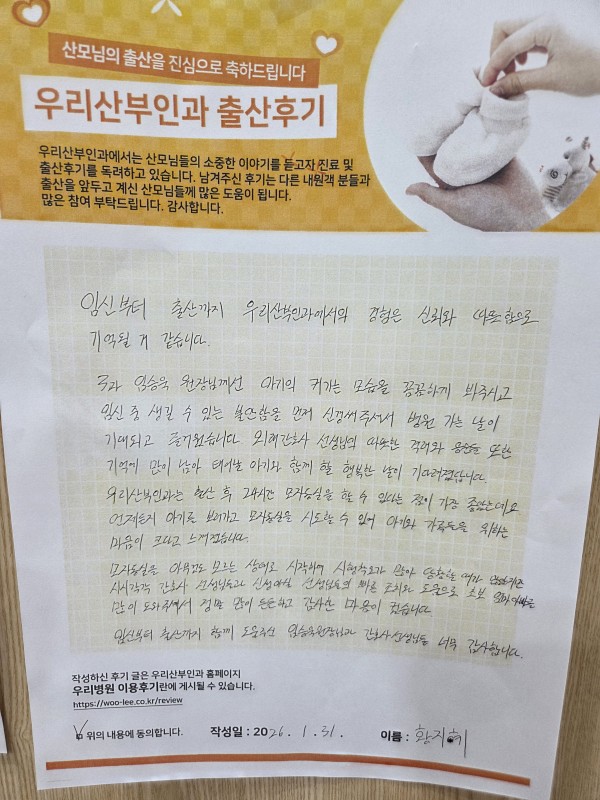 산모님의 출산을 진심으로 축하드립니다
우리산부인과 출산후기
우리산부인과에서는 산모님들의 소중한 이야기를 듣고자 진료 및
출산후기를 독려하고 있습니다. 남겨주신 후기는 다른 내원객 분들과
출산을 앞두고 계신 산모님들께 많은 도움이 됩니다.
많은 참여 부탁드립니다. 감사합니다.
임신부터 출산까지 우리산부인과에서의 경험은 신뢰와 따뜻함으로
기억될 거 같습니다.
임승욱 원장님께선 아기의 커가는 모습을 꼼꼼하게 봐주시고
임신 중 생길 수 있는 불안함을 먼저 신경써주셔서 병원 가는 날이
기대되고 즐거웠습니다 외래간호사 선생님의 따뜻한 격려와 응원들 또한
기억에 많이 남아 태어날 아기와 함께 할 행복한 날이 기다려졌답니다.
우리산부인과는 출산 후 24시간 모자동실을 할 수 있다는 점이 가장 좋았는데요
언제든지 아기를 보러가고 모자동실을 시도할 수 있어 아기와 가족들을 위하는
마음이 크다고 느껴졌습니다.
모자동실은 아무것도 모르는 상태로 시작하여 시행착오가 많아 당황할 때가 많았지만
시시각각 간호사 선생님들과 신생아실 선생님들의 빠른 조치와 도움으로 초보 엄마아빠를
많이 도와주셔서 정말 많이 든든하고 감사한 마음이 컸습니다.
임신부터 출산까지 함께 도와주신 임승욱원장님과 간호사선생님들 너무 감사합니다.
작성하신 후기 글은 우리산부인과 홈페이지
우리병원 이용후기란에 게시될 수 있습니다.
https://woo-lee.co.kr/review
위의 내용에 동의합니다. 작성일 : 2026. 1. 31. 이름 : 황지혜